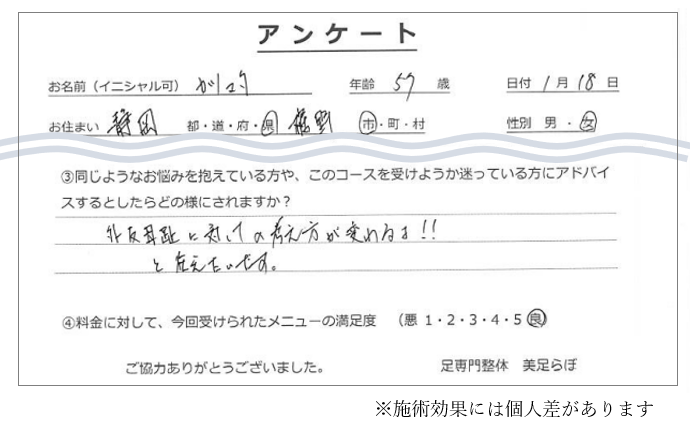 アンケート
お名前（イニシャル可） 年齢 57 歳 日付 1月18日
お住まい 静岡 都・道・府・県 裾野 市・町・村 性別 男・女
③同じようなお悩みを抱えている方や、このコースを受けようか迷っている方にアドバイ
スするとしたらどの様にされますか？
外反母趾に対しての考え方が変わるよ!!
と伝えたいです。
④料金に対して、今回受けられたメニューの満足度 （悪 1・2・3・4・5 良）
ご協力ありがとうございました。 足専門整体 美足らぼ
※施術効果には個人差があります